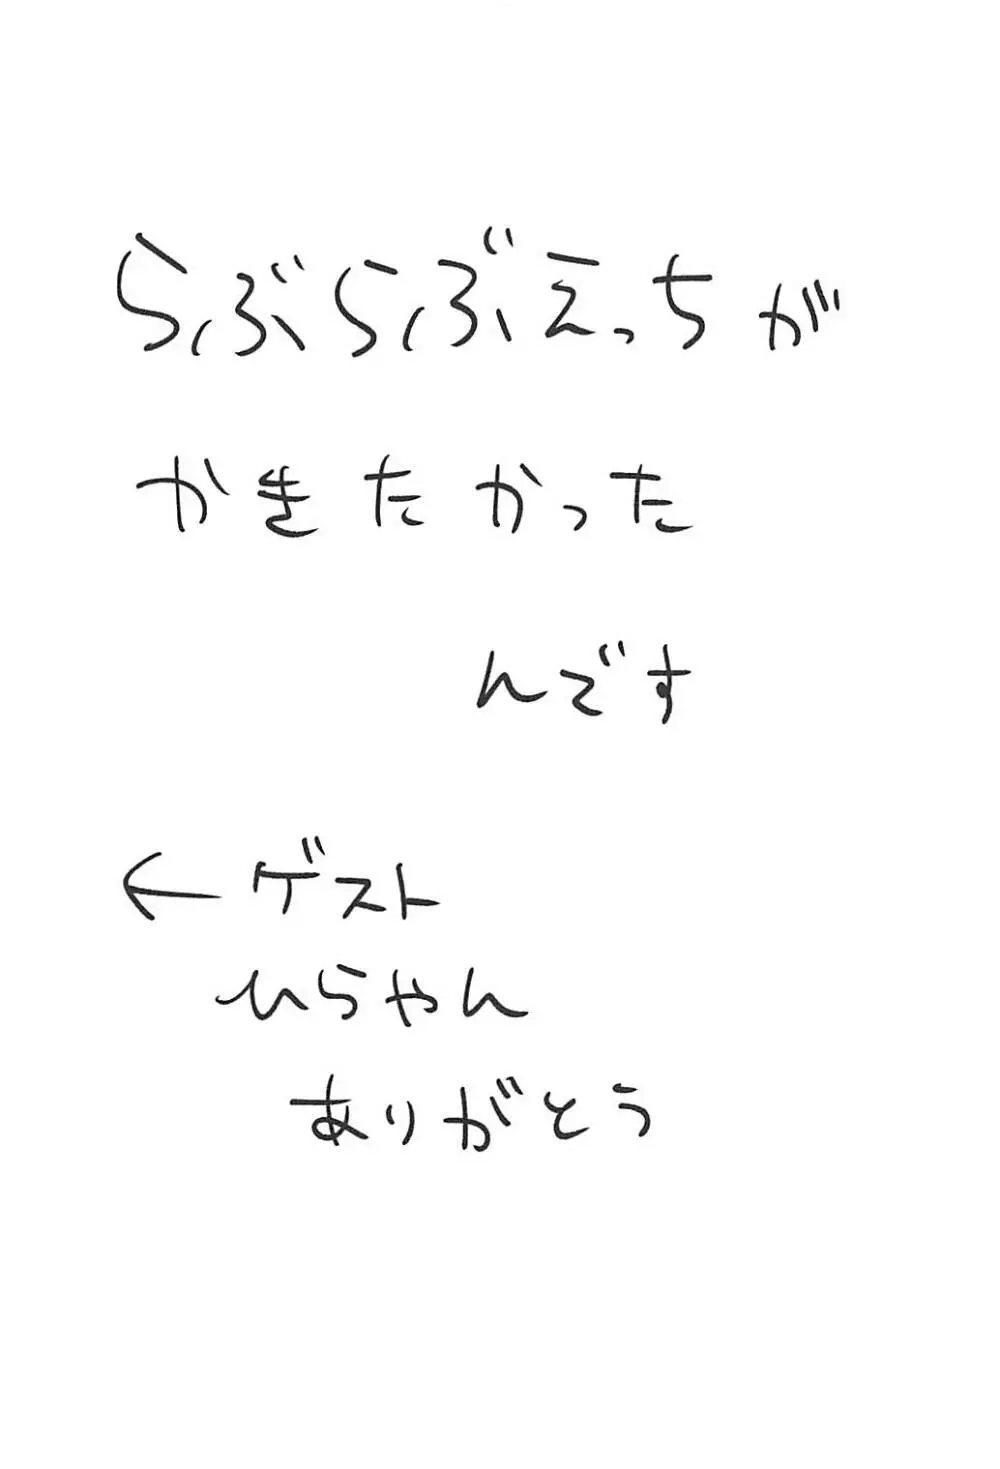 らぶらぶえっちが
かきたかった
んです
←ゲスト
いらやん
ありがとう